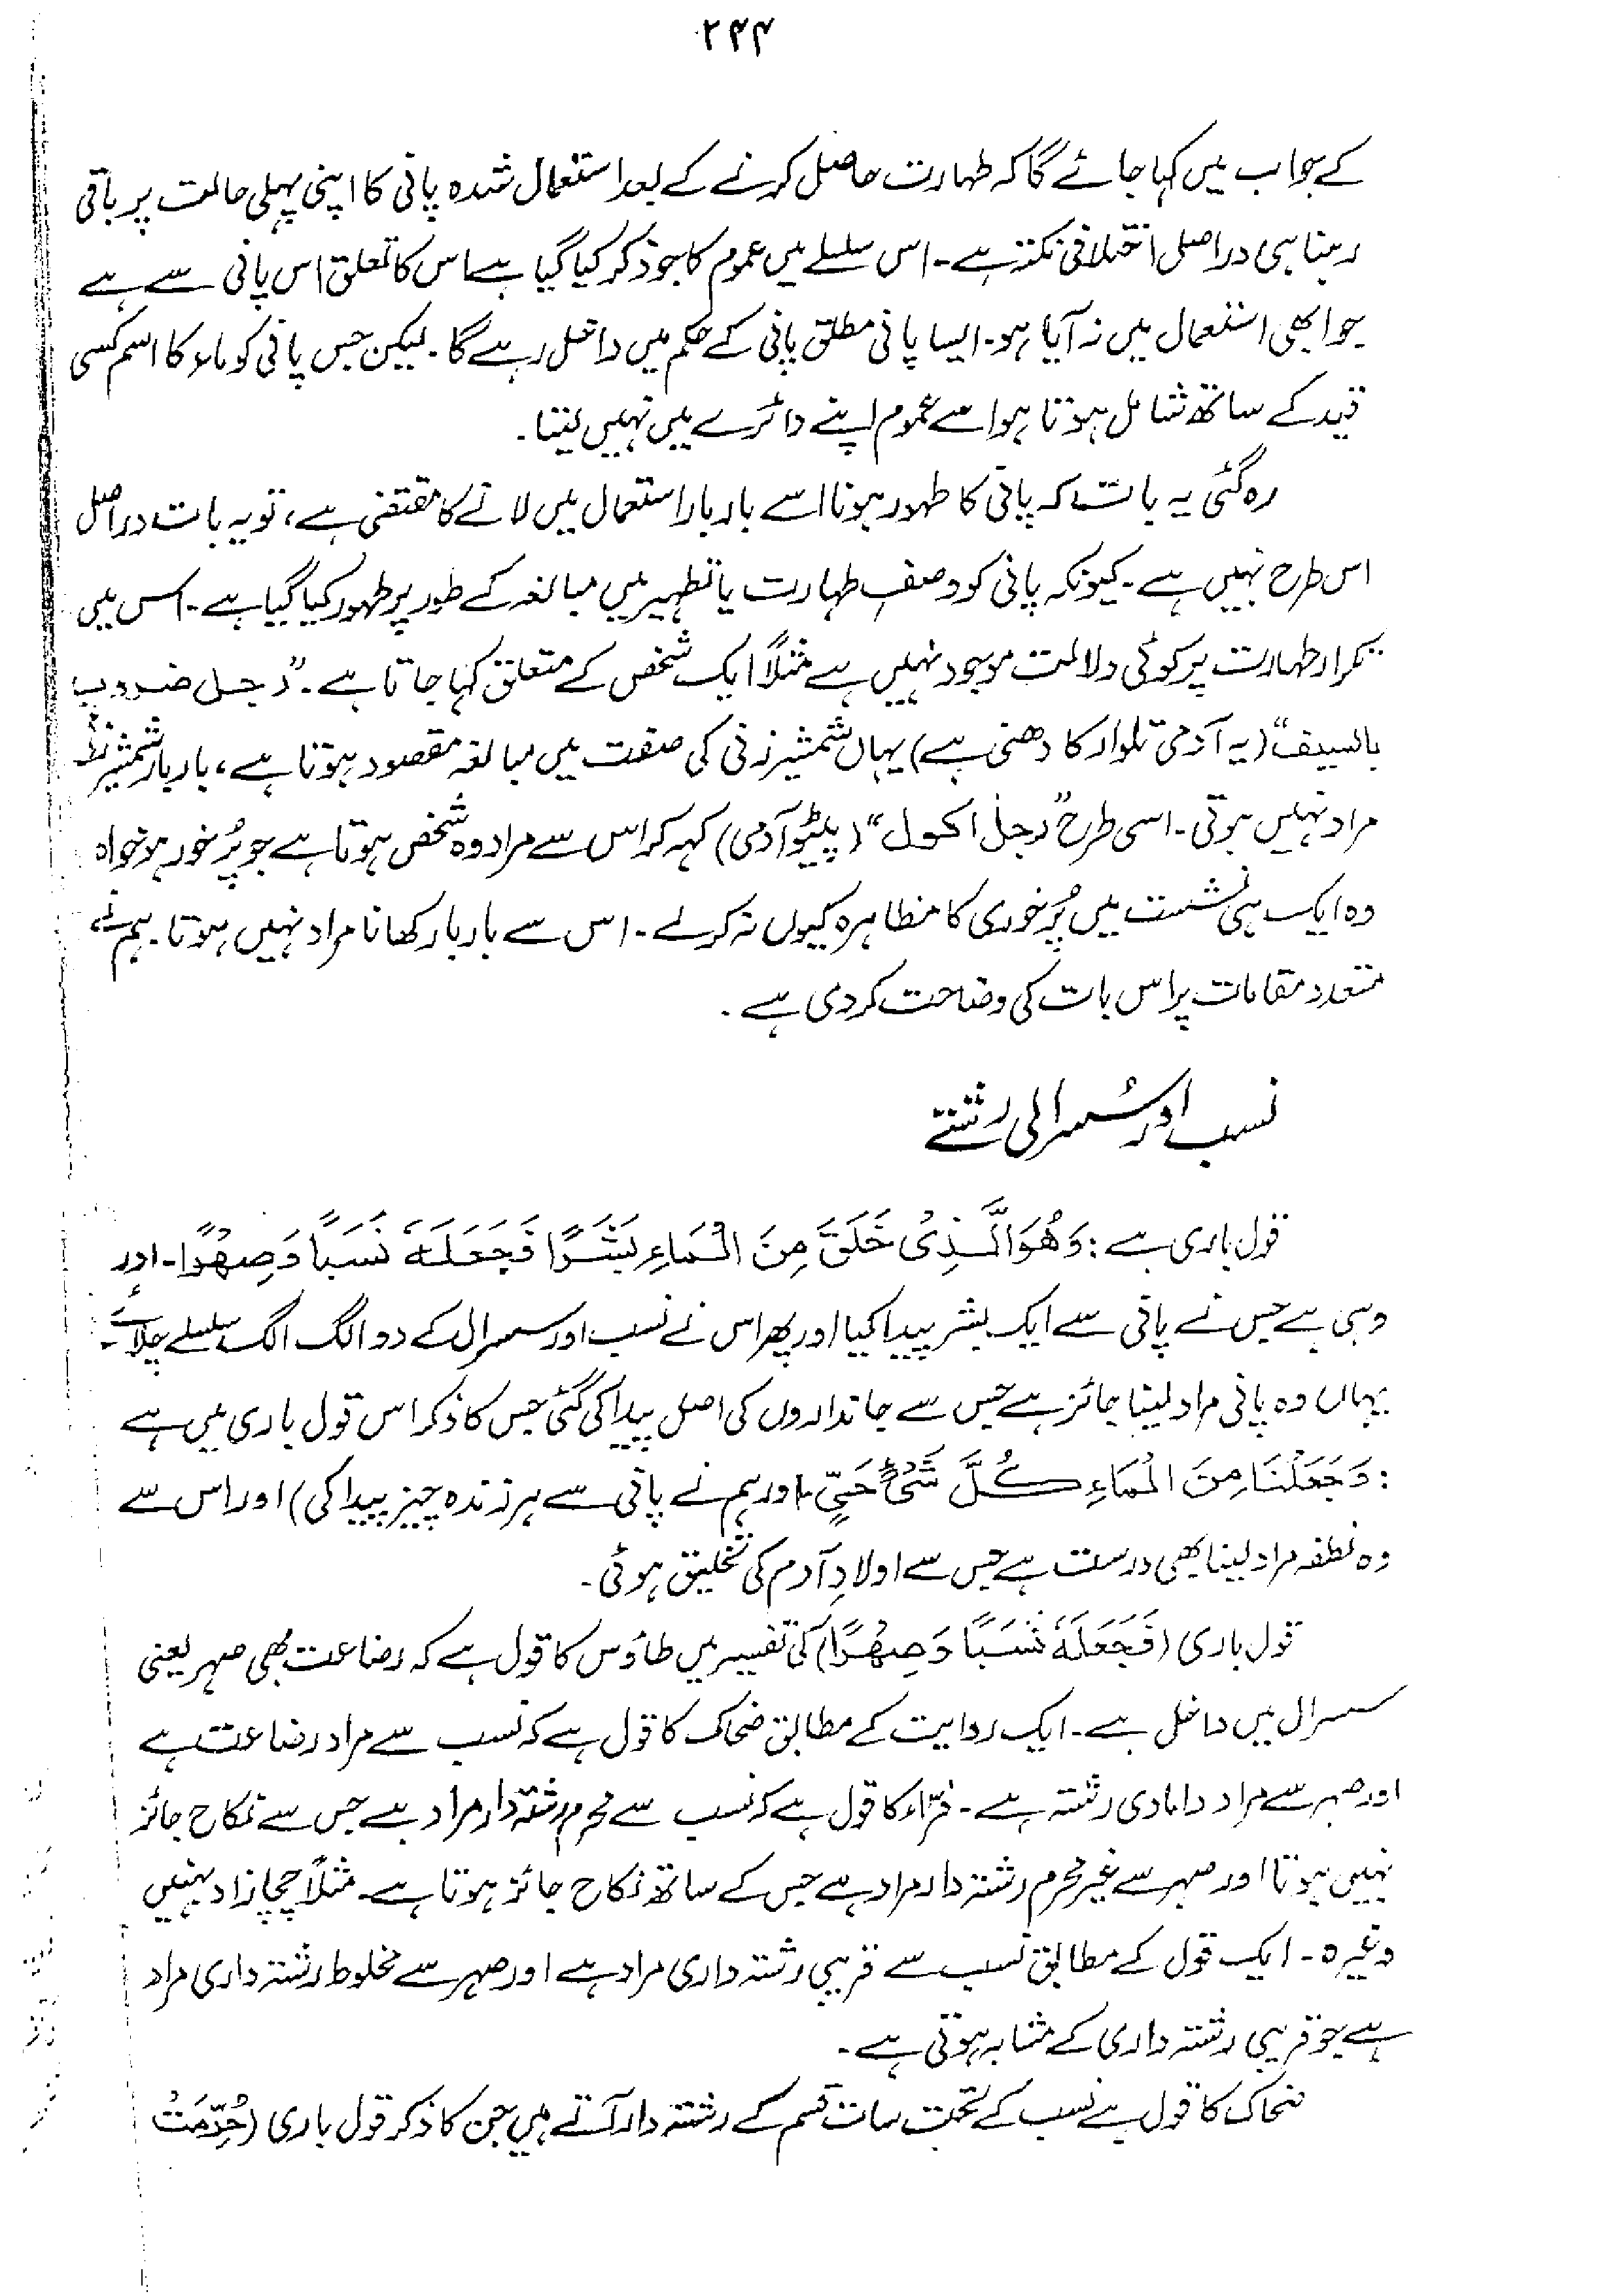 ۲۴۴
کے جواب میں کہا جائے گا کہ طہارت حاصل کرنے کے بعد استعمال شدہ پانی کا اپنی پہلی حالت پر باقی
رہنا ہی دراصل اختلافی نکتہ ہے۔ اس سلسلے میں عموم کا جو ذکر کیا گیا ہے اس کا تعلق اس پانی سے ہے
جو ابھی استعمال میں نہ آیا ہو۔ ایسا پانی مطلق پانی کے حکم میں داخل رہے گا۔ لیکن جس پانی کو ماء کا اسم کسی
قید کے ساتھ شامل ہوتا ہو اسے عموم اپنے دائرے میں نہیں لیتا۔
رہ گئی یہ بات کہ پانی کا طہور ہونا اسے بار بار استعمال میں لانے کا مقتضی ہے، تو یہ بات دراصل
اس طرح نہیں ہے۔ کیونکہ پانی کو وصفِ طہارت یا تطہیر میں مبالغہ کے طور پر طہور کہا گیا ہے۔ اس میں
تکرار طہارت پر کوئی دلالت موجود نہیں ہے مثلاً ایک شخص کے متعلق کہا جاتا ہے۔ "رجل ضروب
بالسیف" (یہ آدمی تلوار کا دھنی ہے) یہاں شمشیر زنی کی صفت میں مبالغہ مقصود ہوتا ہے، بار بار شمشیر زنی
مراد نہیں ہوتی۔ اسی طرح "رجل اکول" (پیٹو آدمی) کہہ کر اس سے مراد وہ شخص ہوتا ہے جو پُرخور ہو خواہ
وہ ایک ہی نشست میں پُرخوری کا مظاہرہ کیوں نہ کرلے۔ اس سے بار بار کھانا مراد نہیں ہوتا۔ ہم نے
متعدد مقامات پر اس بات کی وضاحت کر دی ہے۔
نسب اور سُسرالی رشتے
قول باری ہے: وَهُوَ الَّذِیْ خَلَقَ مِنَ الْمَاءِ بَشَرًا فَجَعَلَهٗ نَسَبًا وَصِهْرًا۔ اور
وہی ہے جس نے پانی سے ایک بشر پیدا کیا اور پھر اس نے نسب اور سسرال کے دو الگ الگ سلسلے چلائے۔
یہاں وہ پانی مراد لینا جائز ہے جس سے جانداروں کی اصل پیدا کی گئی جس کا ذکر اس قول باری میں ہے
: وَجَعَلْنَا مِنَ الْمَاءِ كُلَّ شَیْءٍ حَیٍّ۔ اور ہم نے پانی سے ہر زندہ چیز پیدا کی) اور اس سے
وہ نطفہ مراد لینا بھی درست ہے جس سے اولادِ آدم کی تخلیق ہوئی۔
قول باری (فَجَعَلَهٗ نَسَبًا وَصِهْرًا) کی تفسیر میں طاؤس کا قول ہے کہ رضاعت بھی صہر یعنی
سسرال میں داخل ہے۔ ایک روایت کے مطابق ضحاک کا قول ہے کہ نسب سے مراد رضاعت ہے
اور صہر سے مراد دامادی رشتہ ہے۔ فرّاء کا قول ہے کہ نسب سے محرم رشتہ دار مراد ہے جس سے نکاح جائز
نہیں ہوتا اور صہر سے غیر محرم رشتہ دار مراد ہے جس کے ساتھ نکاح جائز ہوتا ہے۔ مثلاً چچازاد بہنیں
وغیرہ۔ ایک قول کے مطابق نسب سے قریبی رشتہ داری مراد ہے اور صہر سے مخلوط رشتہ داری مراد
ہے جو قریبی رشتہ داری کے مشابہ ہوتی ہے۔
ضحاک کا قول ہے نسب کے تحت سات قسم کے رشتہ دار آتے ہیں جن کا ذکر قول باری (حُرِّمَتْ